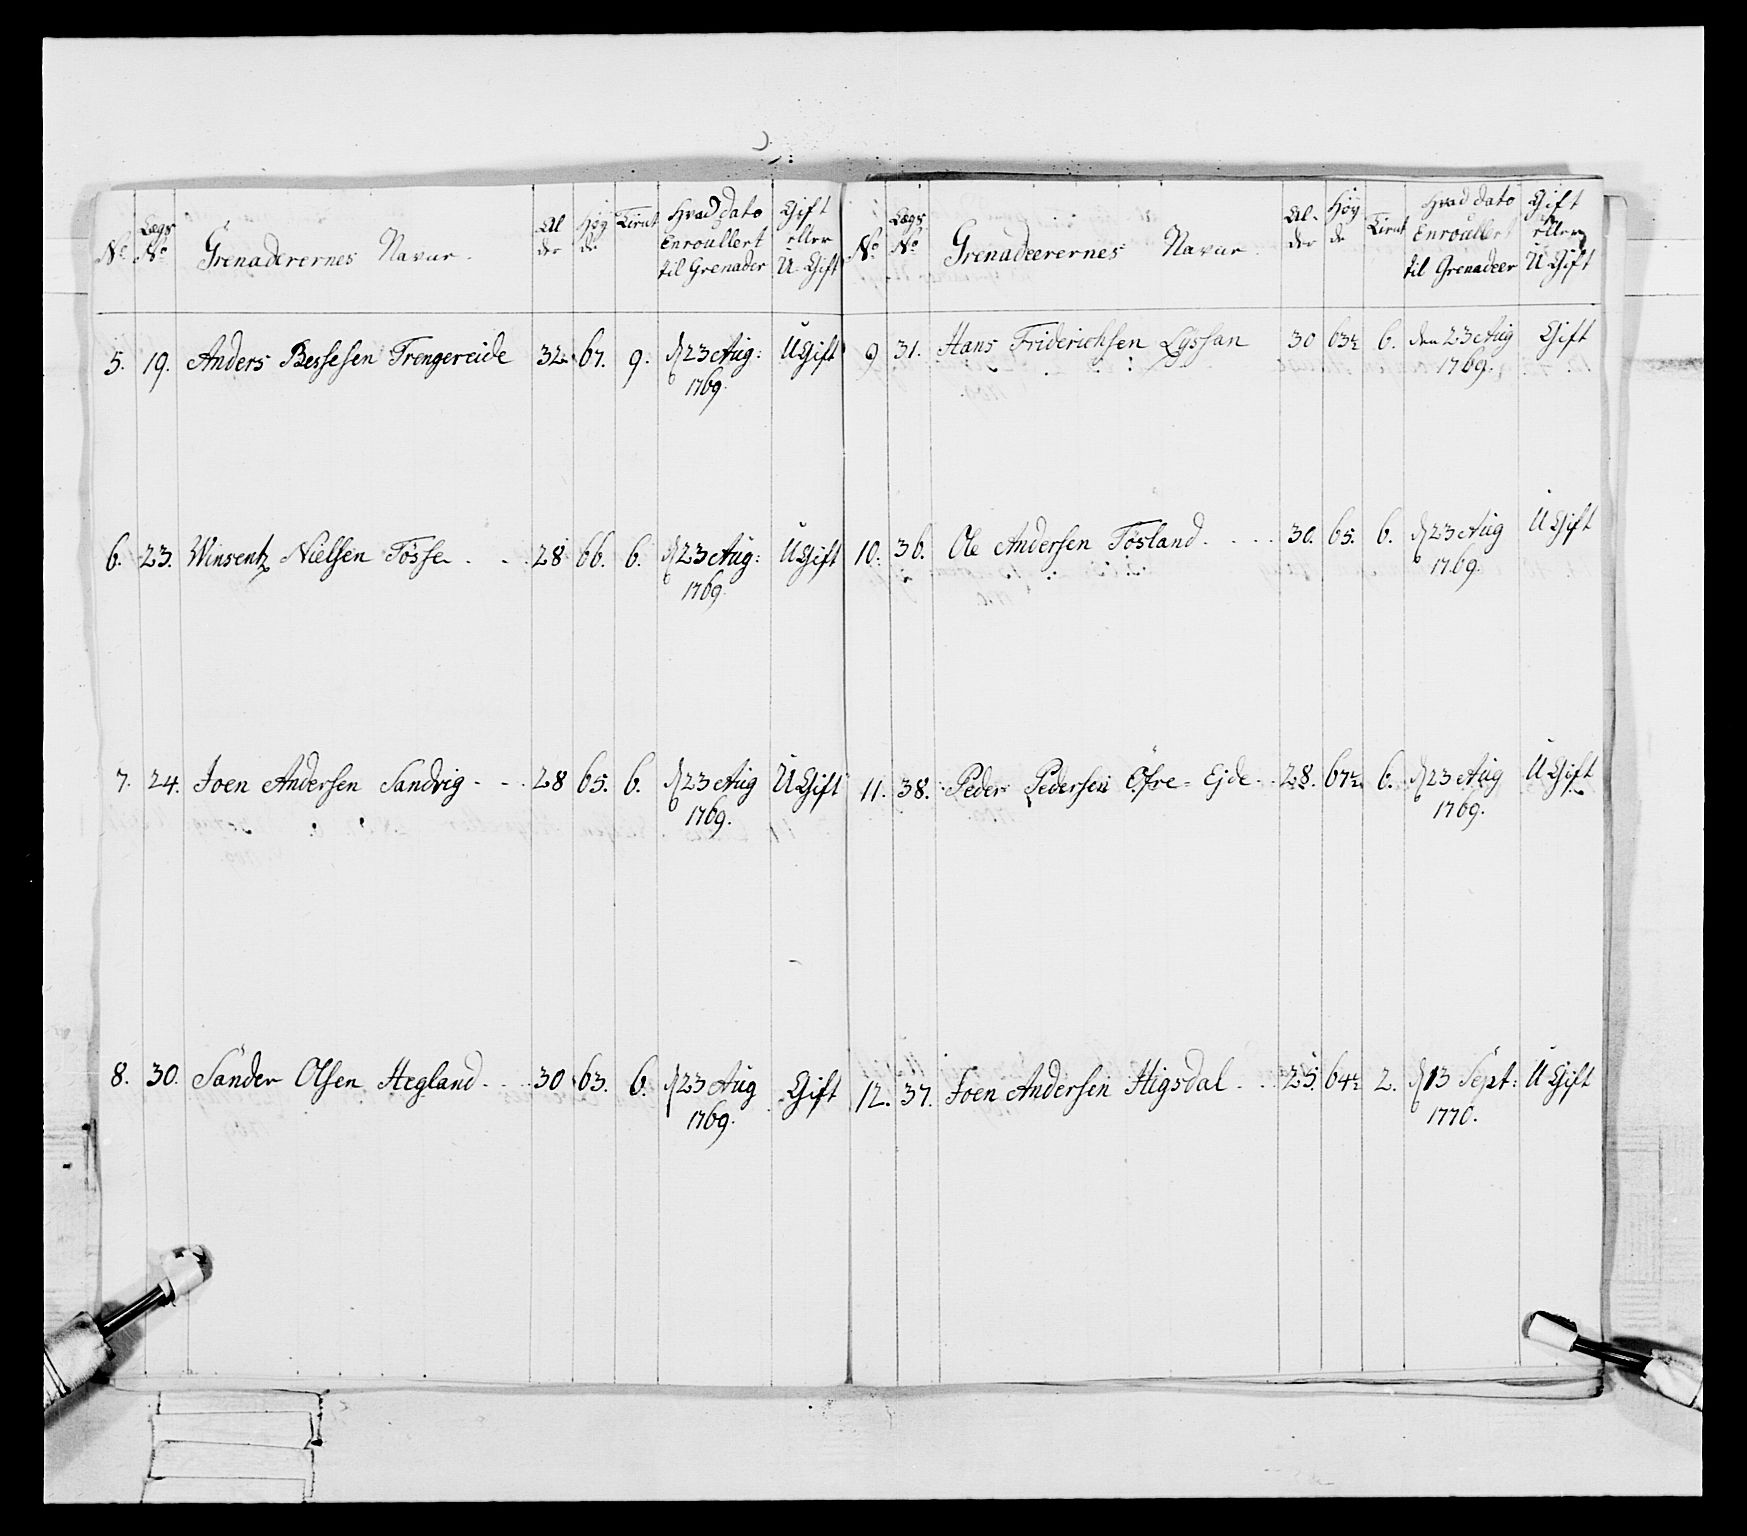 No | Lægs No | Grenaderernes Navne. | Al der | Høy de | Tient | Hvad dato Enroullert til Grenader | Gift eller U-Gift
5. | 19. | Anders Bessesen Trengereide | 32. | 67. | 9. | d 23 Aug: 1769. | U Gift
6. | 23. | Winsentz Nielsen Tösse . . . | 28 | 66. | 6. | d 23 Aug: 1769. | U Gift
7. | 24. | Joen Andersen Sandvig - - . | 28 | 65. | 6. | d 23 Aug 1769. | U Gift
8. | 30. | Sander Olsen Hegland . . . | 30 | 63. | 6. | d 23 Aug 1769. | Gift
No | Lægs No | Grenadeerernes Navne | Al- der | Høy de | Tient | Hvad dato Enroullert til Grenadeer | Gift eller U Gift
9 | 31. | Hans Friderichsen | 30 | 63½ | 6. | den 23 Aug 1769. | Gift
10. | 36. | Ole Andersen Tösland . . . . | 30. | 65. | 6. | d 23 Aug 1769. | U Gift
11. | 38. | Peder Pedersen Öfre-Ejde . . | 28. | 67½ | 6. | d 23 Aug 1769. | U Gift
12. | 37. | Joen Andersen Higsdal . . . | 25. | 64½ | 2. | d 13 Sept: 1770. | U Gift